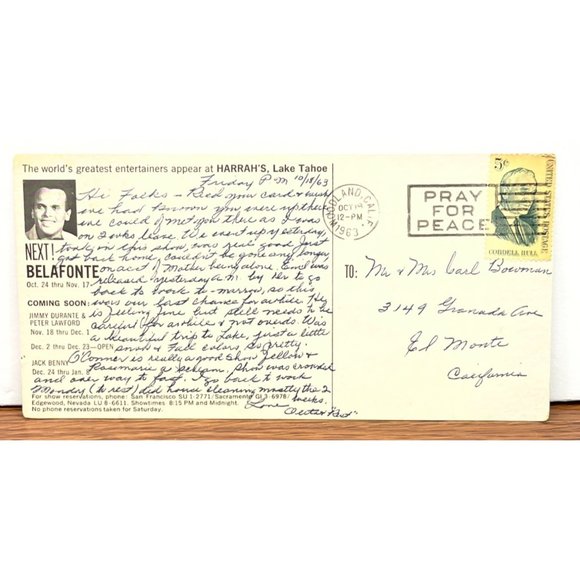 The world's greatest entertainers appear at HARRAH'S, Lake Tahoe
Friday P.M 10/18/63
Hi Folks - Recd your card & wish
we had known you were up there
we could of met you there as I was
on 2 wks leave. We went up yesterday
took in this show, was real good. Just
got back home, couldn't be gone any longer
on acct of Mother being alone. Emil was
released yesterday A M by Dr to go
back to work to-morrow, so this
was our last chance for awhile. He
is feeling fine but still needs to be
careful for awhile & not overdo. Was
a beautiful trip to Lake, just a little
snow & Fall colors, so pretty.
O'Connor is really a good show fellow &
Rosemarie a scream. Show was crowded
and over way to fast. I go back to work
Monday (to rest) did house cleaning mostly the 2
Love weeks.
NEXT!
BELAFONTE
Oct. 24 thru Nov. 17
COMING SOON:
JIMMY DURANTE &
PETER LAWFORD
Nov. 18 thru Dec. 1
Dec. 2 thru Dec. 23—OPEN
JACK BENNY
Dec. 24 thru Jan.
For show reservations, phone: San Francisco SU 1-2771/Sacramento GL 3-6978/
Edgewood, Nevada LU 8-6611. Showtimes 8:15 PM and Midnight.
No phone reservations taken for Saturday.
WOODLAND, CALIF.
OCT 19
12-PM
1963
PRAY
FOR
PEACE
5¢
UNITED STATES POSTAGE
CORDELL HULL
TO: Mr & Mrs Carl Bowman
3149 Granada Ave
El Monte
California